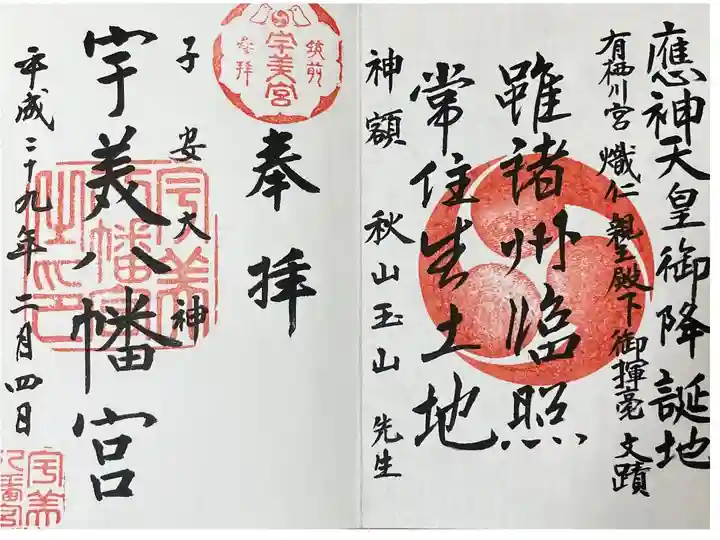 應神天皇御降誕地
有栖川宮 熾仁 親王殿下 御揮亳 文蹟
雖諸州臨照
常住生土地
神額 秋山玉山 先生
奉拝
筑前
宇美宮
参拝
子安大神
宇美八幡宮
平成二十九年 二月四日
宇美
八幡宮
之印
宇美
八幡宮